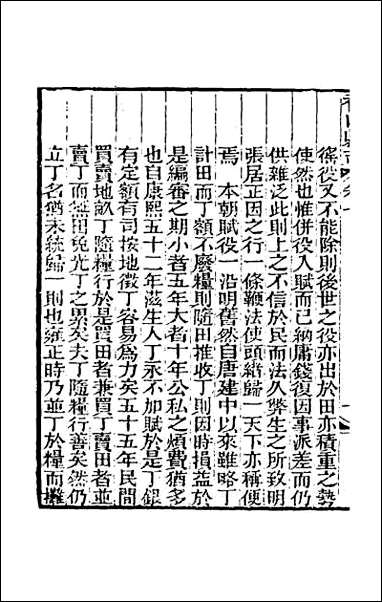 徭役又不能除則後世之役亦出於田亦積重之勢
使然也惟併役入賦而已納庸錢復因事派差而仍
供雜泛此則上之不信於民而法久弊生之所致明
張居正因之行一條鞭法使頭緒歸一天下亦稱便
焉　本朝賦役一沿明舊然自唐建中以來雖略丁
計田而丁額不廢糧則隨田推收丁則因時損益於
是編審之期小者五年大者十年公私之煩費猶多
也自康熙五十二年滋生人丁永不加賦於是丁銀
有定額有司按地徵丁容易為力矣五十五年民間
買賣地畝丁隨糧行於是買田者兼買丁賣田者並
賣丁而無田免光丁之累矣夫丁隨糧行善矣然仍
立丁名猶未統歸一則也雍正時乃並丁於糧而攤